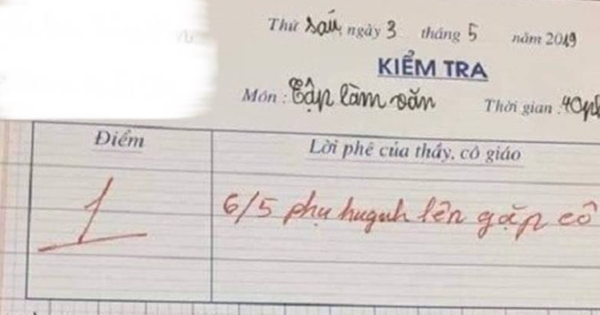 Thứ sáu, ngày 3 tháng 5 năm 2019
KIỂM TRA
Môn : Tập làm văn Thời gian : 40ph
Điểm Lời phê của thầy, cô giáo
1 6/5 phụ huynh lên gặp cô